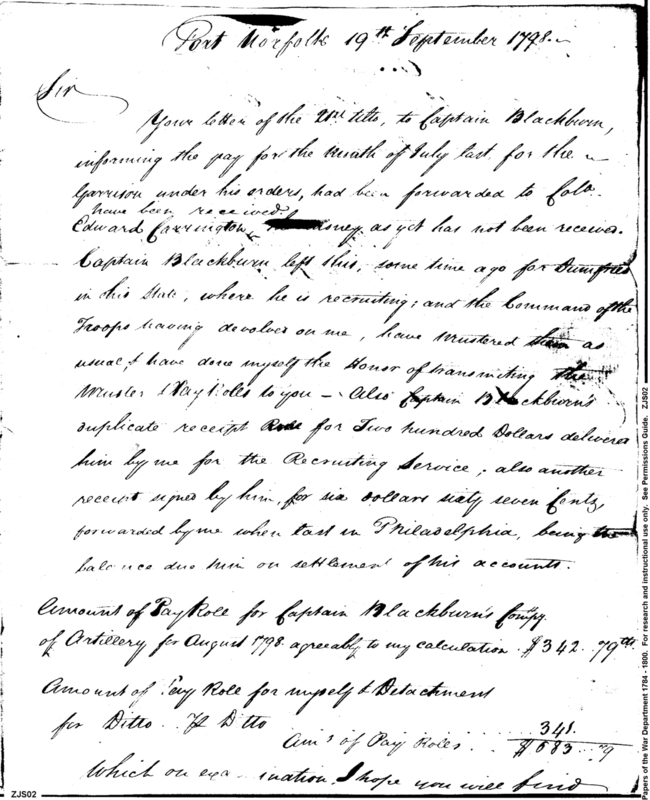 Fort Norfolk 19th September 1798.
Sir
Your letter of the 21st Ulto, to Captain Blackburn,
informing the pay for the Month of July last, for the
Garrison under his orders, had been forwarded to Colo.
have been received.
Edward Carrington, money as yet has not been received.
Captain Blackburn left this, some time ago for Dumfries
in this State, where he is recruiting; and the Command of the
Troops having devolved on me, have Mustered them as
usual, & have done myself the Honor of transmitting the
Muster & Pay Rolls to you - Also Captain Blackburn's
duplicate receipt for Two hundred Dollars delivered
him by me for the Recruiting Service; also another
receipt signed by him, for six dollars sixty seven Cents,
forwarded by me when last in Philadelphia, being the
balance due him on settlement of his accounts.
Amount of Pay Role for Captain Blackburn's Compy.
of Artillery for August 1798. agreeably to my calculation. $342. 79cts.
Amount of Pay Role for myself & Detachment
for Ditto. & Ditto 341.
Amt. of Pay Roles $683. 79
Which on examination I hope you will find
ZJS02
Papers of the War Department 1784 - 1800. For research and instructional use only. See Permissions Guide. ZJS02